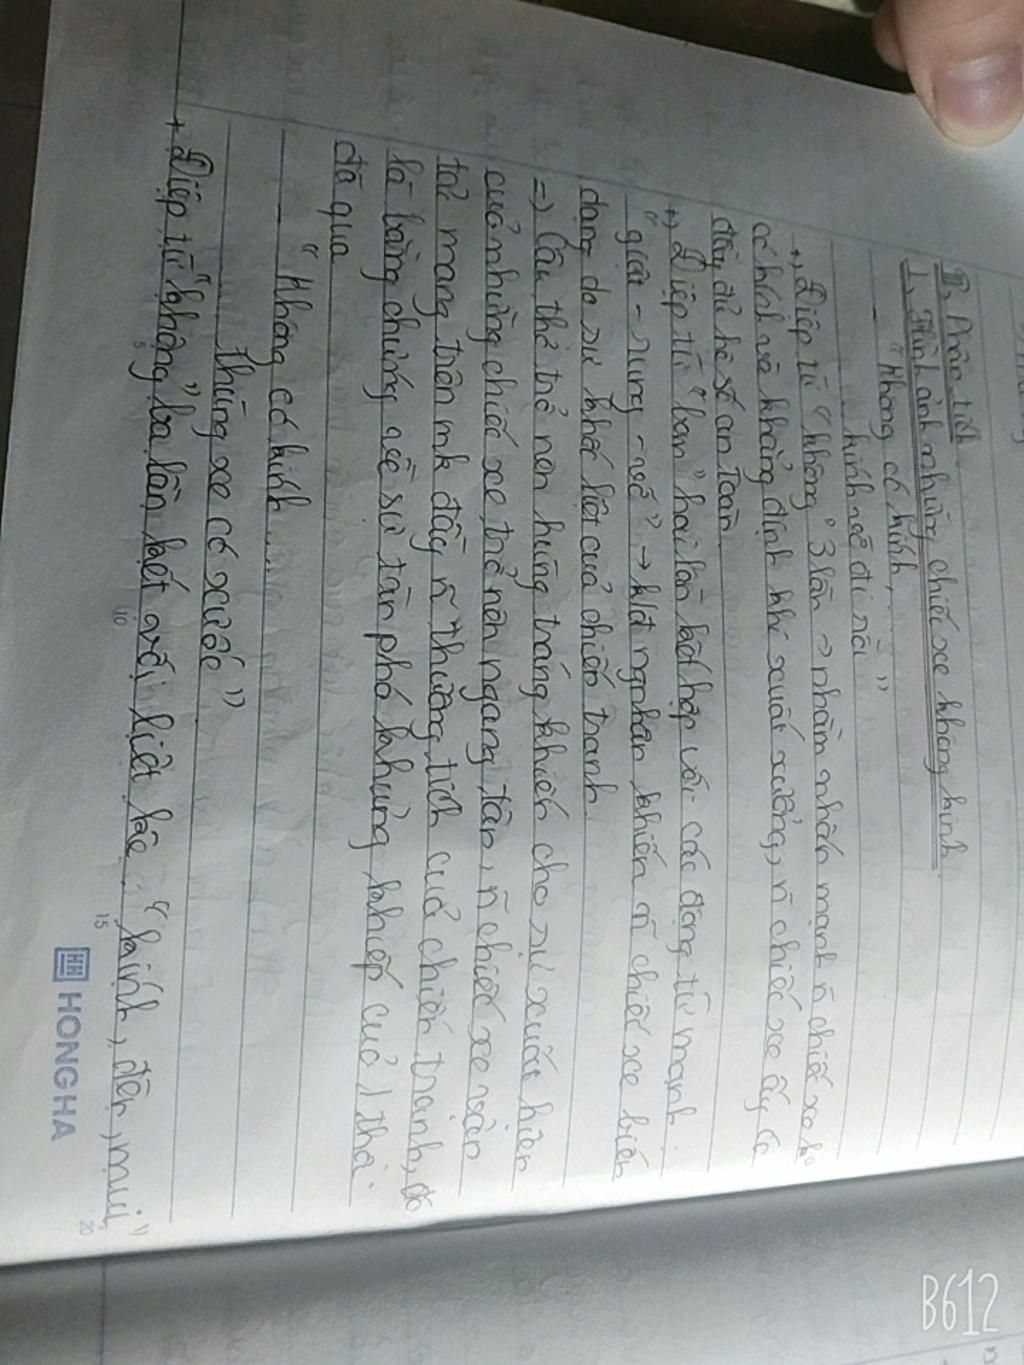 II, Phân tích
1, Hình ảnh những chiếc xe không kính
"Không có kính,......
kính vỡ đi rồi"
+, Điệp từ "không" 3 lần -> nhằm nhấn mạnh ~ chiếc xe ko
có kính và khẳng định khi xuất xưởng, ~ chiếc xe ấy có
đầy đủ hệ số an toàn
+, Điệp từ "bom" hai lần kết hợp với các động từ mạnh
"giật - rung - vỡ" -> khiến ~ chiếc xe biến
dạng do sự khốc liệt của chiến tranh.
=) Câu thơ trở nên hùng tráng khiến cho sự xuất hiện
của những chiếc xe trở nên ngang tàn, ~ chiếc xe vận
tải mang trên mk đầy ~ thương tích của chiến tranh, đó
là bằng chứng về sự tàn phá khủng khiếp của 1 thời
đã qua
"Không có kính.....
thùng xe có xước"
+ Điệp từ "không" ba lần kết với liệt kê "kính, đèn, mui"
5
10
15
20
HH HONG HA
B612